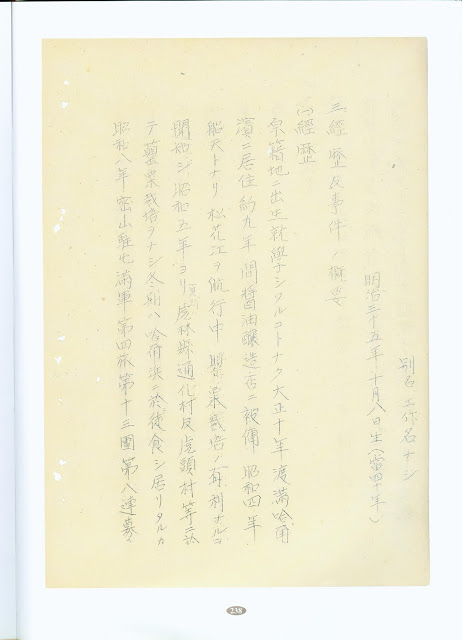 別名 工作名ナシ
明治三十五年十月八日生(當四十年)
三、經歷及事件ノ概要
(一)經歷
原籍地ニ出生就學シタルコトナク大正十年渡滿哈爾
濱ニ居住約九年間醬油釀造店ニ被傭 昭和四年
船夫トナリ松花江ヲ航行中 罌粟栽培ノ有利ナルヲ
開始シ 昭和五年ヨリ虎林縣通化村及虎頭村等ニ於
テ罌粟栽培ヲナシ冬期ハ哈爾濱ニ於徒食シ居リタルカ
昭和八年密山駐屯滿軍第四旅第十三團第八連募
238